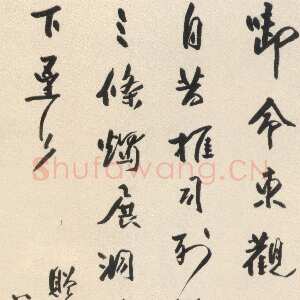 啣令東觀
自昔推司列
三條燭展洞
下重
贈
Shufawang.CN